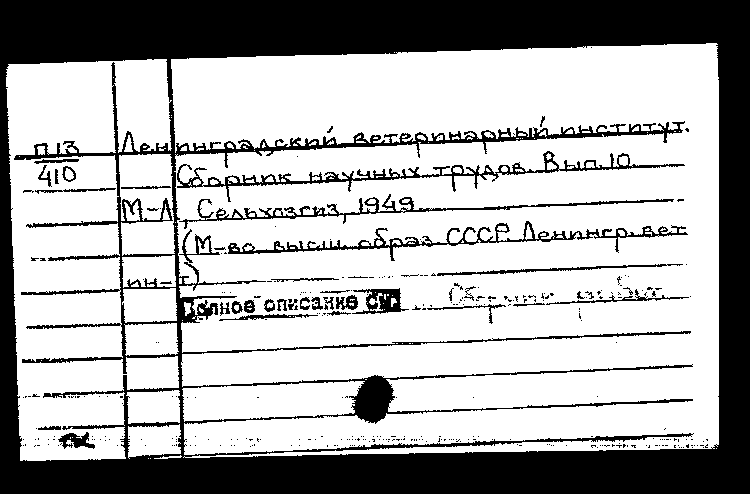 П13
410
Ленинградский ветеринарный институт.
Сборник научных трудов. Вып. 10.
М.-Л., Сельхозгиз, 1949.
(М-во высш. образ СССР. Ленингр. вет
ин-т)
Полное описание см. Сборник работ.